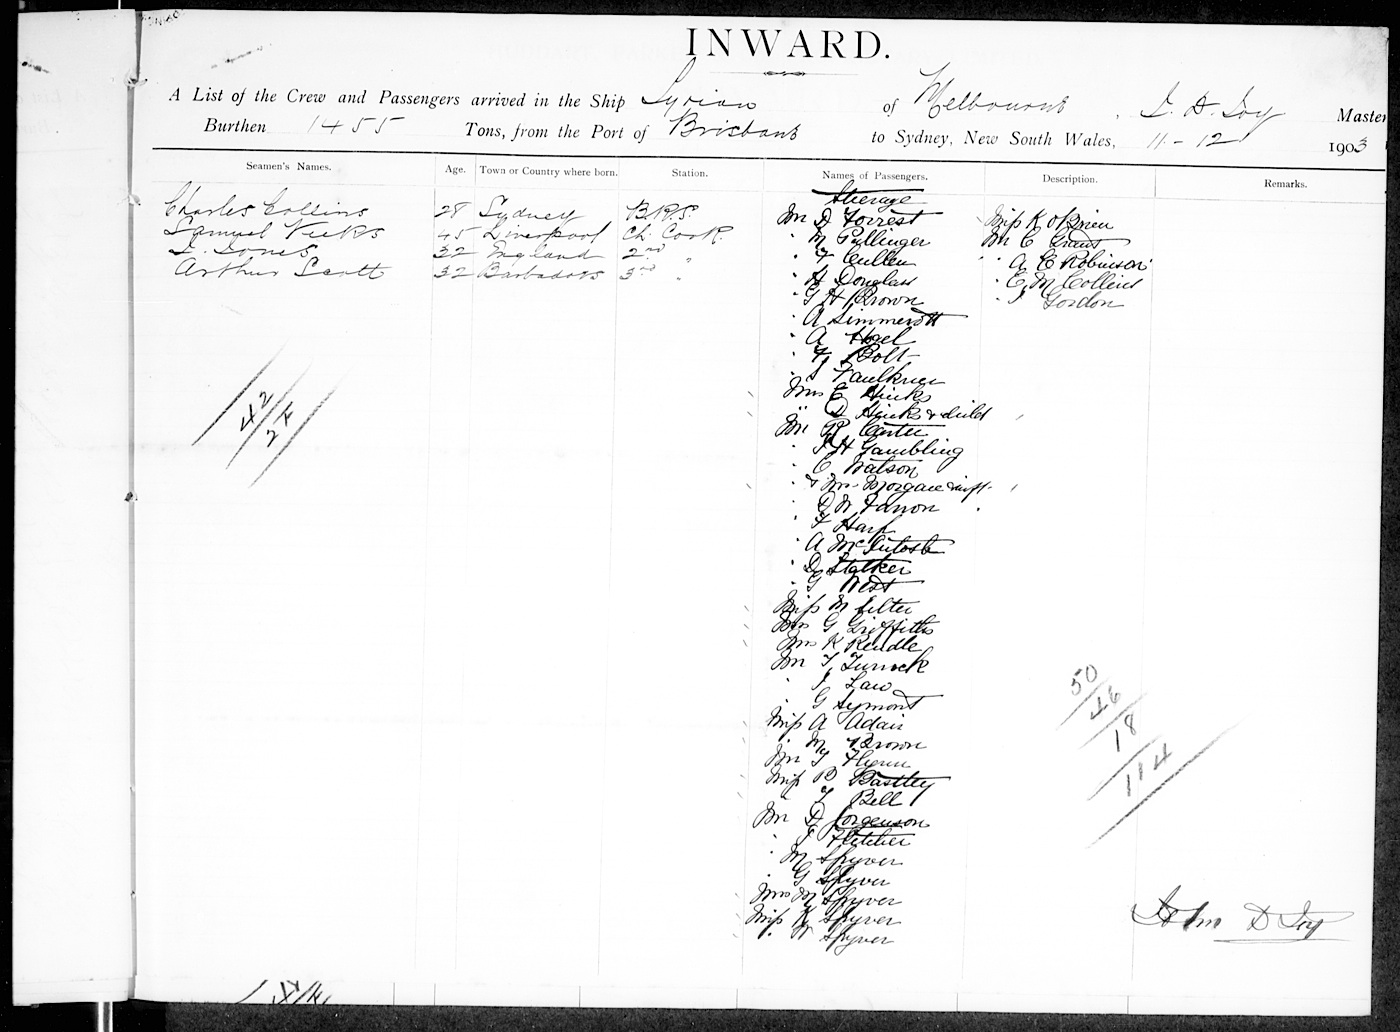 INWARD.
A List of the Crew and Passengers arrived in the Ship Syrian of Melbourne, J. D. Joy Master
Burthen 1455 Tons, from the Port of Brisbane to Sydney, New South Wales, 11-12 1903
Seamen's Names. Age. Town or Country where born. Station. Names of Passengers. Description. Remarks.
Steerage
Charles Collins 28 Sydney B.R.S. Mr D Forrest Miss K O'Brien
Samuel Vicks 45 Liverpool Ch. Cook. " M Gullinger Mr C Grant
J. Jones 32 England 2nd " " F Cullen " A C Robinson
Arthur Scott 32 Barbados 3rd " " H Douglass " E M Collins
" G H Brown " J Gordon
" A Simmerott
" A Hoel
" F Bolt
" J Faulkner
Mrs E Hicks
" D Hicks & child
Mr R Carter
" J H Gambling
" C Watson
" & Mrs Morgan & inft.
" D W Farron
" F Harp
" A McIntosh
" D Stalker
" G West
Miss M Filter
Mrs G Griffiths
Mrs K Rendle
Mr T Turnock
" J Law
" G Symont
Miss A Adair
" M Brown
Mr T Flynn
Miss B Bastley
" F Bell
Mr D Jorgenson
" J Fletcher
" M Spyver
" G Spyver
Mrs M Spyver
Miss K Spyver
" W Spyver
42
2F
50
46
18
114
John D Joy